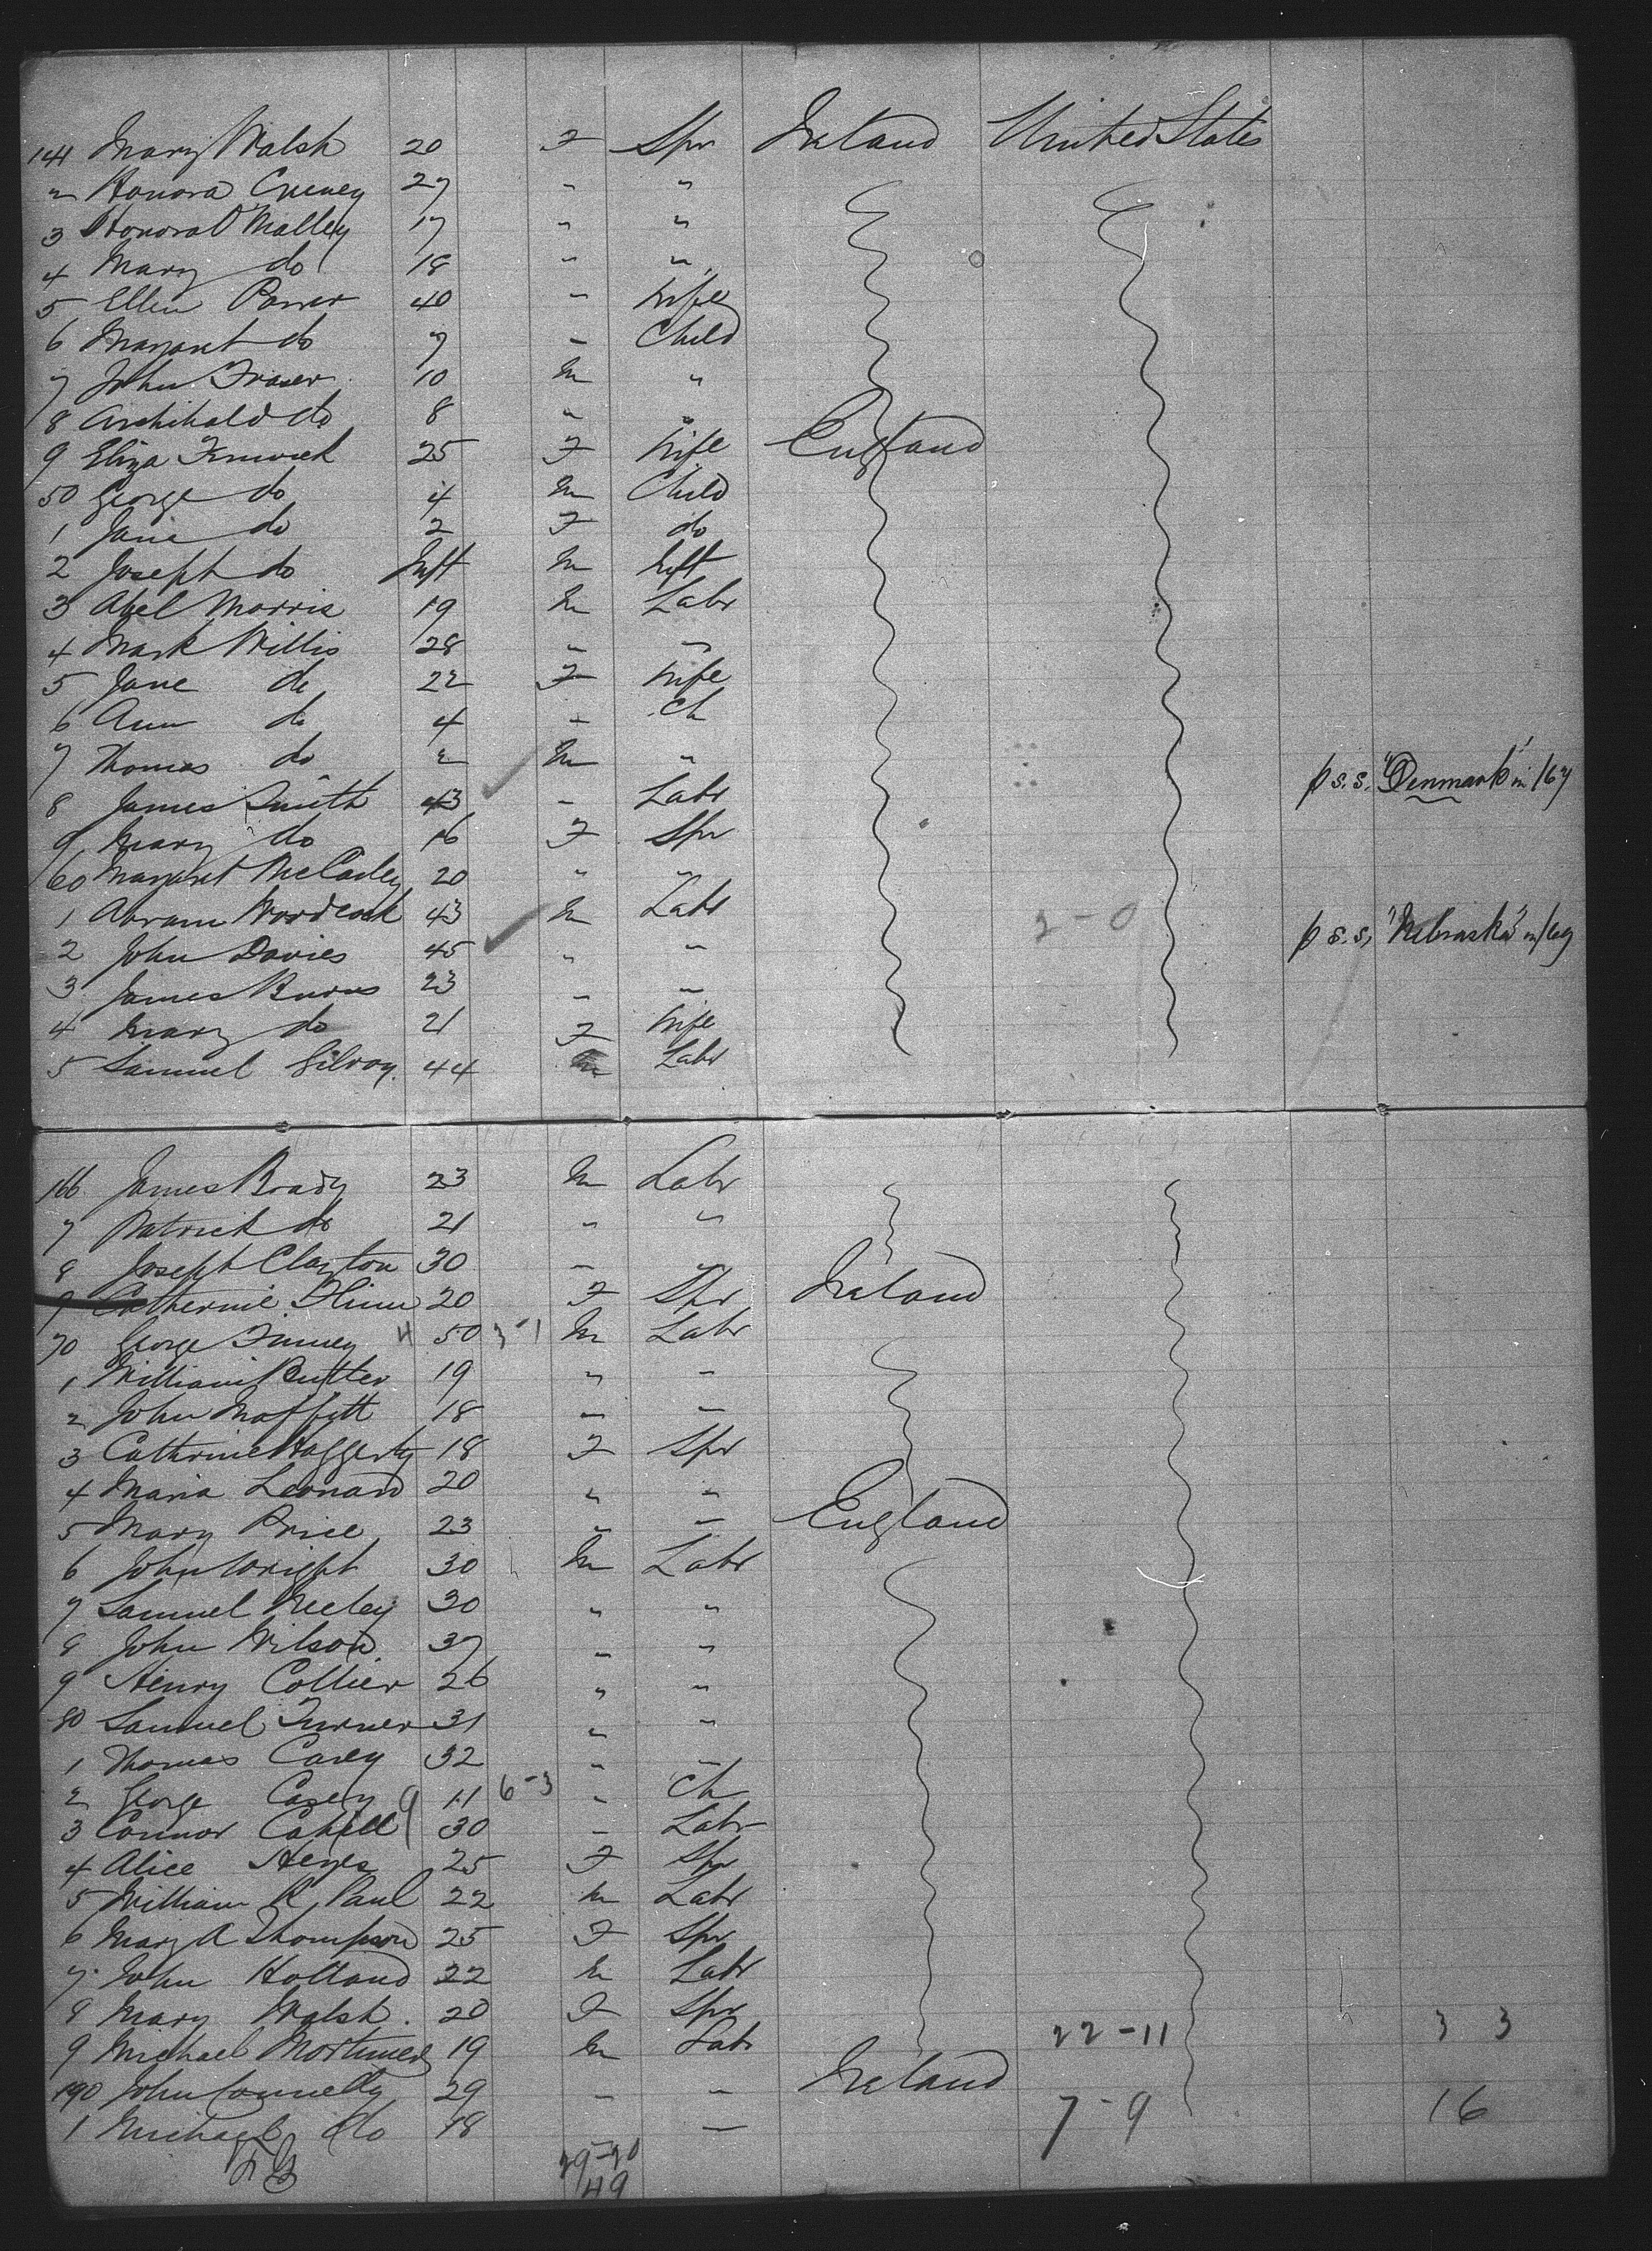 141 Mary Walsh 20 F Spr Ireland United States
2 Honora 27 " "
3 Honora O'Malley 17 " "
4 Mary do 18 " "
5 Ellen Power 40 " Wife
6 Margaret do 7 " Child
7 John Fraser 10 M "
8 Archibald do 8 " "
9 Eliza Fenwick 25 F Wife England
50 George do 4 M Child
1 Jane do 2 F do
2 Joseph do Inft M Inft
3 Abel Morris 19 M Labr
4 Mark Willis 28 " "
5 Jane do 22 F Wife
6 Ann do 4 " Ch
7 Thomas do 2 M "
8 James Smith 43 " Labr p s.s. "Denmark" in 167
9 Mary do 16 F Spr
60 Margaret 20 " "
1 Abram Woodcock 43 M Labr 2-0
2 John Davies 45 " " p s.s. "Nebraska" in 169
3 James Burns 23 " "
4 Mary do 21 F Wife
5 Samuel Gilroy 44 M Labr
166 James Brady 23 M Labr
7 Patrick do 21 " "
8 Joseph Clayton 30 " "
9 Catherine Flinn 20 F Spr Ireland
70 George Finney 4 50 3-1 M Labr
1 William Butler 19 " "
2 John Moffett 18 " "
3 Cathrine Haggerty 18 F Spr
4 Maria Leonard 20 " "
5 Mary Price 23 " " England
6 John Wright 30 M Labr
7 Samuel 30 " "
8 John Wilson 37 " "
9 Henry Collier 26 " "
80 Samuel Turner 31 " "
1 Thomas Casey 32 " "
2 George Casey 9 11 6-3 " Ch
3 Connor Cahill 30 " Labr
4 Alice Heyes 25 F Spr
5 William R Paul 22 M Labr
6 Mary A Thompson 25 F Spr
7 John Holland 22 M Labr
8 Mary Walsh 20 F Spr
9 Michael 19 M Labr 22-11 3 3
190 John Connelly 29 " " Ireland
1 Michael do 18 " 7-9 16
29-20
49